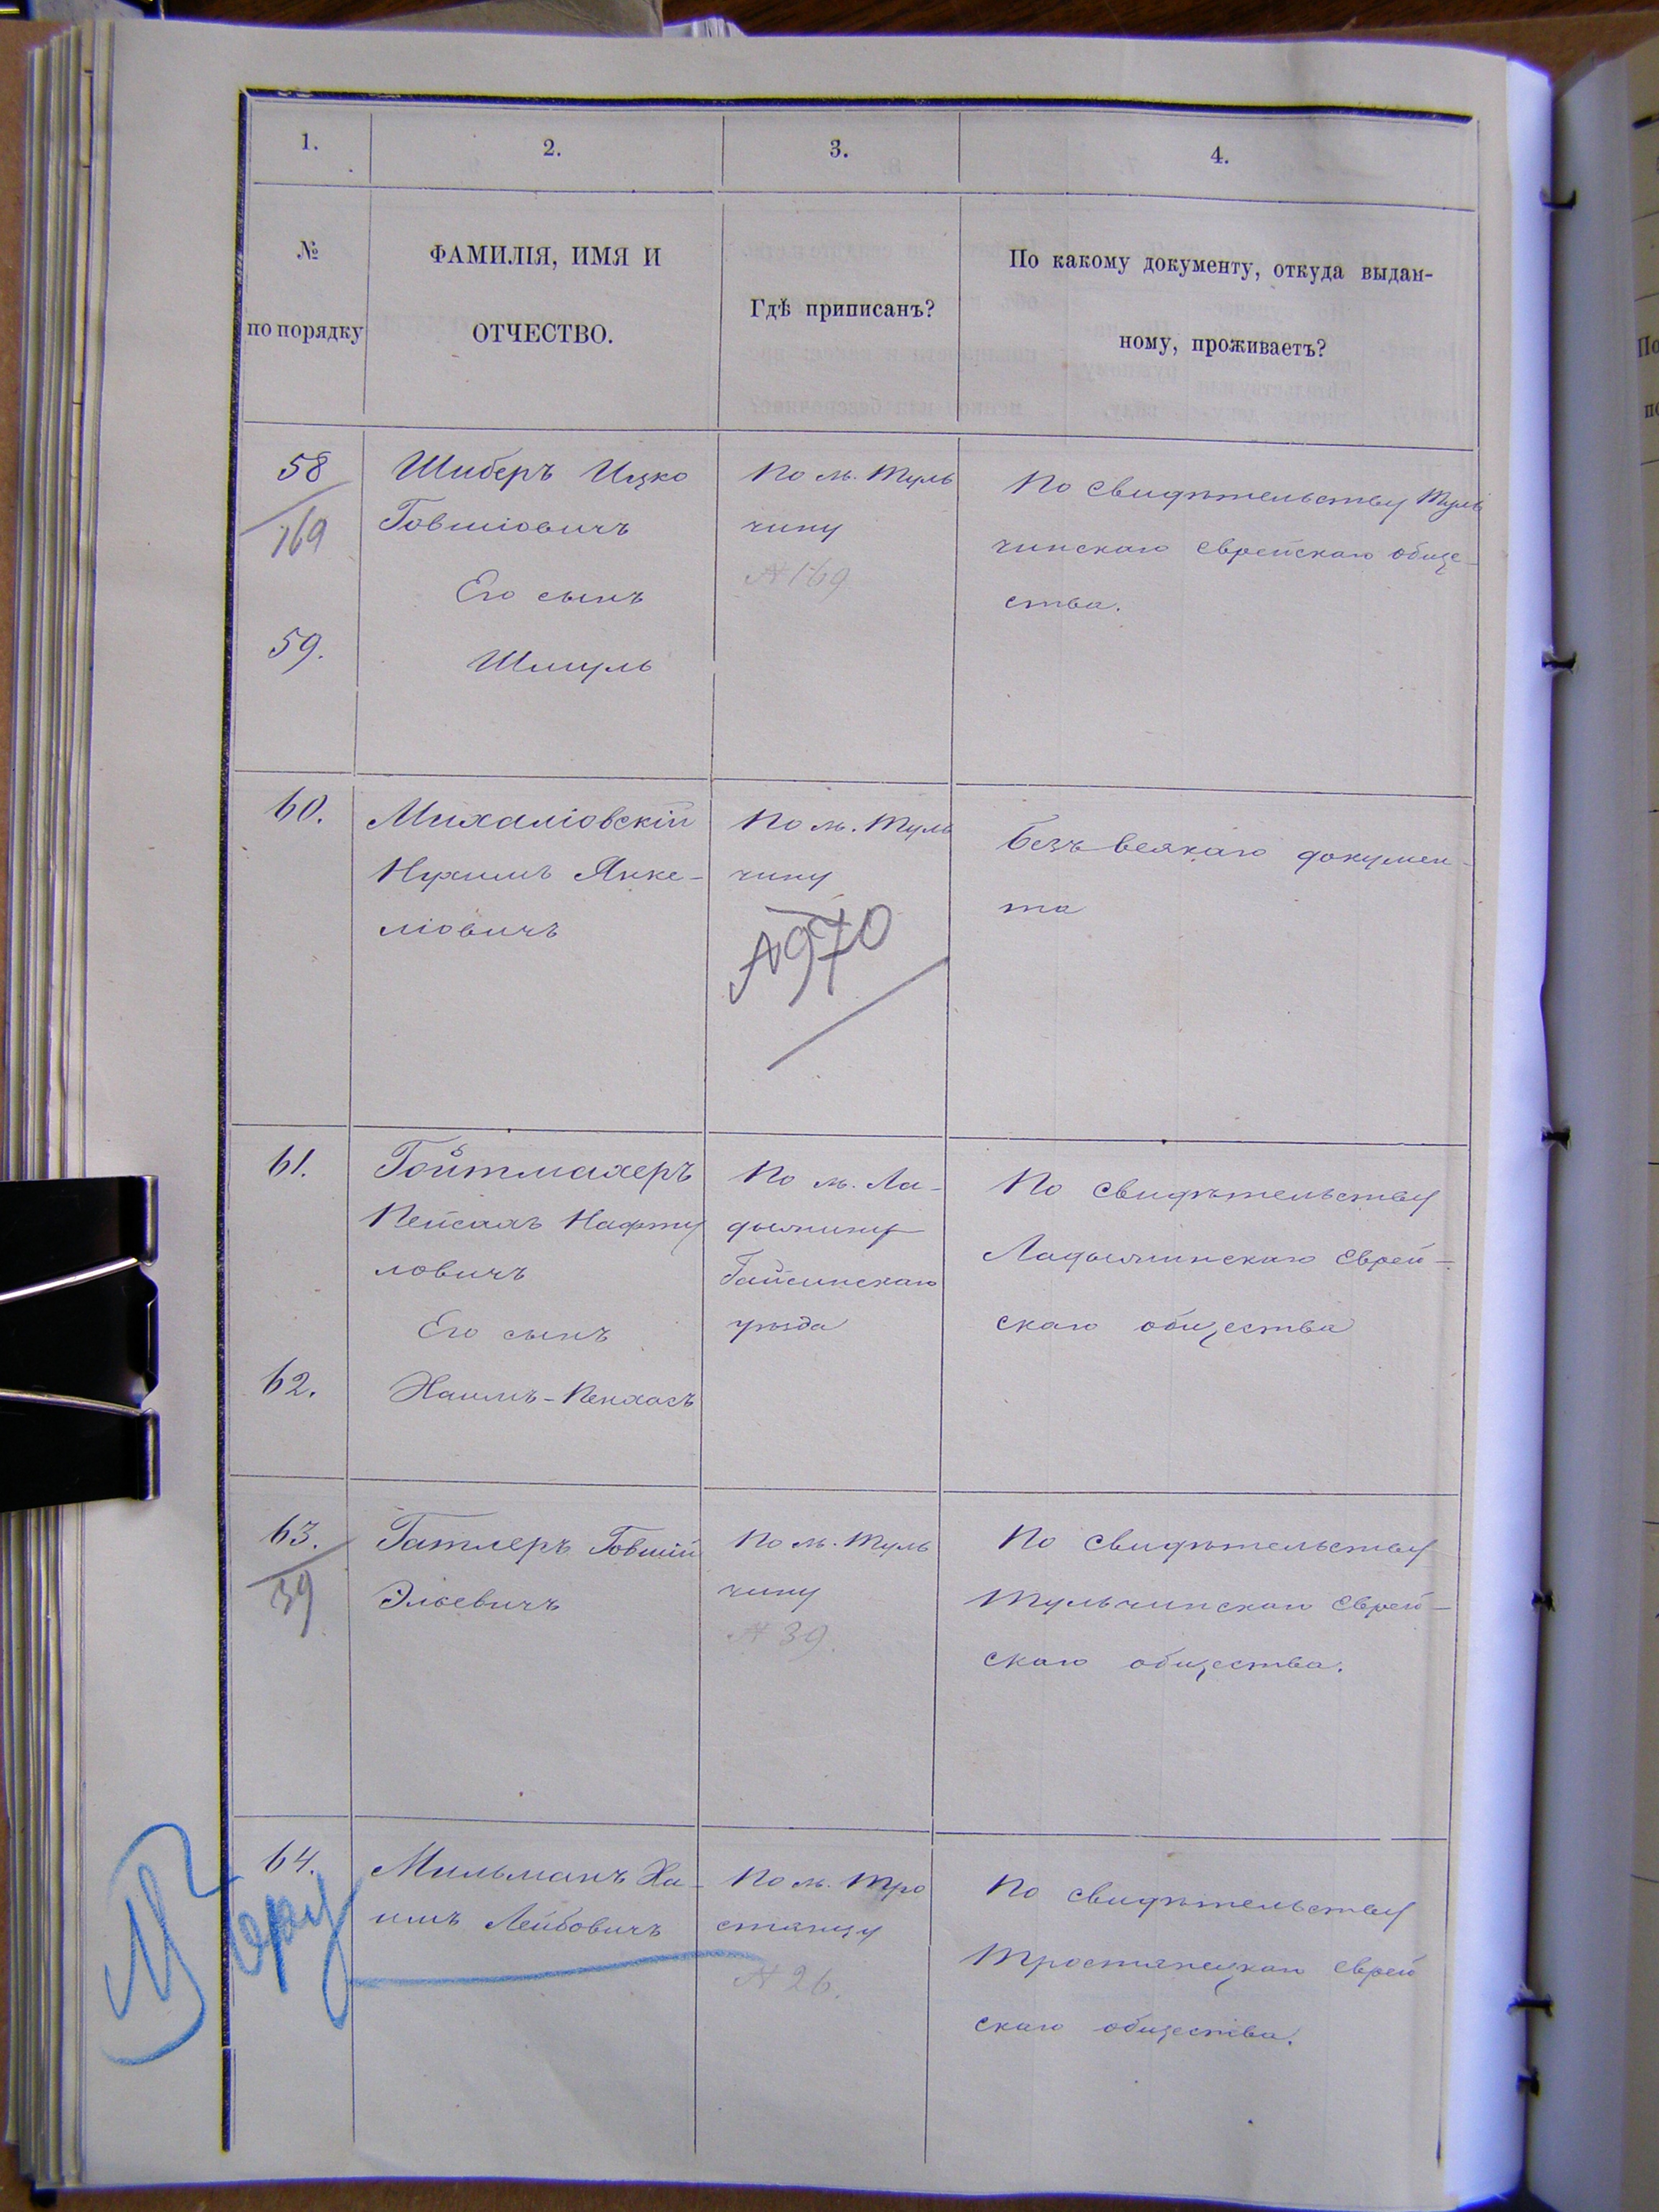 1.
2.
3.
4.
№
по порядку
ФАМИЛІЯ, ИМЯ И
ОТЧЕСТВО.
Гдѣ приписанъ?
По какому документу, откуда выдан-
ному, проживаетъ?
58
169
Шиберъ Ицко
Говшіовичъ
Его сынъ
59.
Шмуль
По м. Туль
чину
№ 169
По свидѣтельству Туль
чинскаго еврейскаго обще-
ства.
60.
Михаліовскій
Нухимъ Янке-
ліовичъ
По м. Туль
чину
№ 970
Безъ всякаго докумен-
та
61.
Гойтмахеръ
Пейсахъ Нафту
ловичъ
Его сынъ
62.
Хаимъ-Пенхасъ
По м. Ла-
дыжину
Гайсинскаго
уѣзда
По свидѣтельству
Ладыжинскаго еврей-
скаго общества
63.
39
Гатлеръ Говшій
Эльевичъ
По м. Туль
чину
№ 39.
По свидѣтельству
Тульчинскаго еврей-
скаго общества.
64.
Мильманъ Ха-
имъ Лейбовичъ
По м. Тро
стянцу
№ 26.
По свидѣтельству
Тростянецкаго еврей
скаго общества.